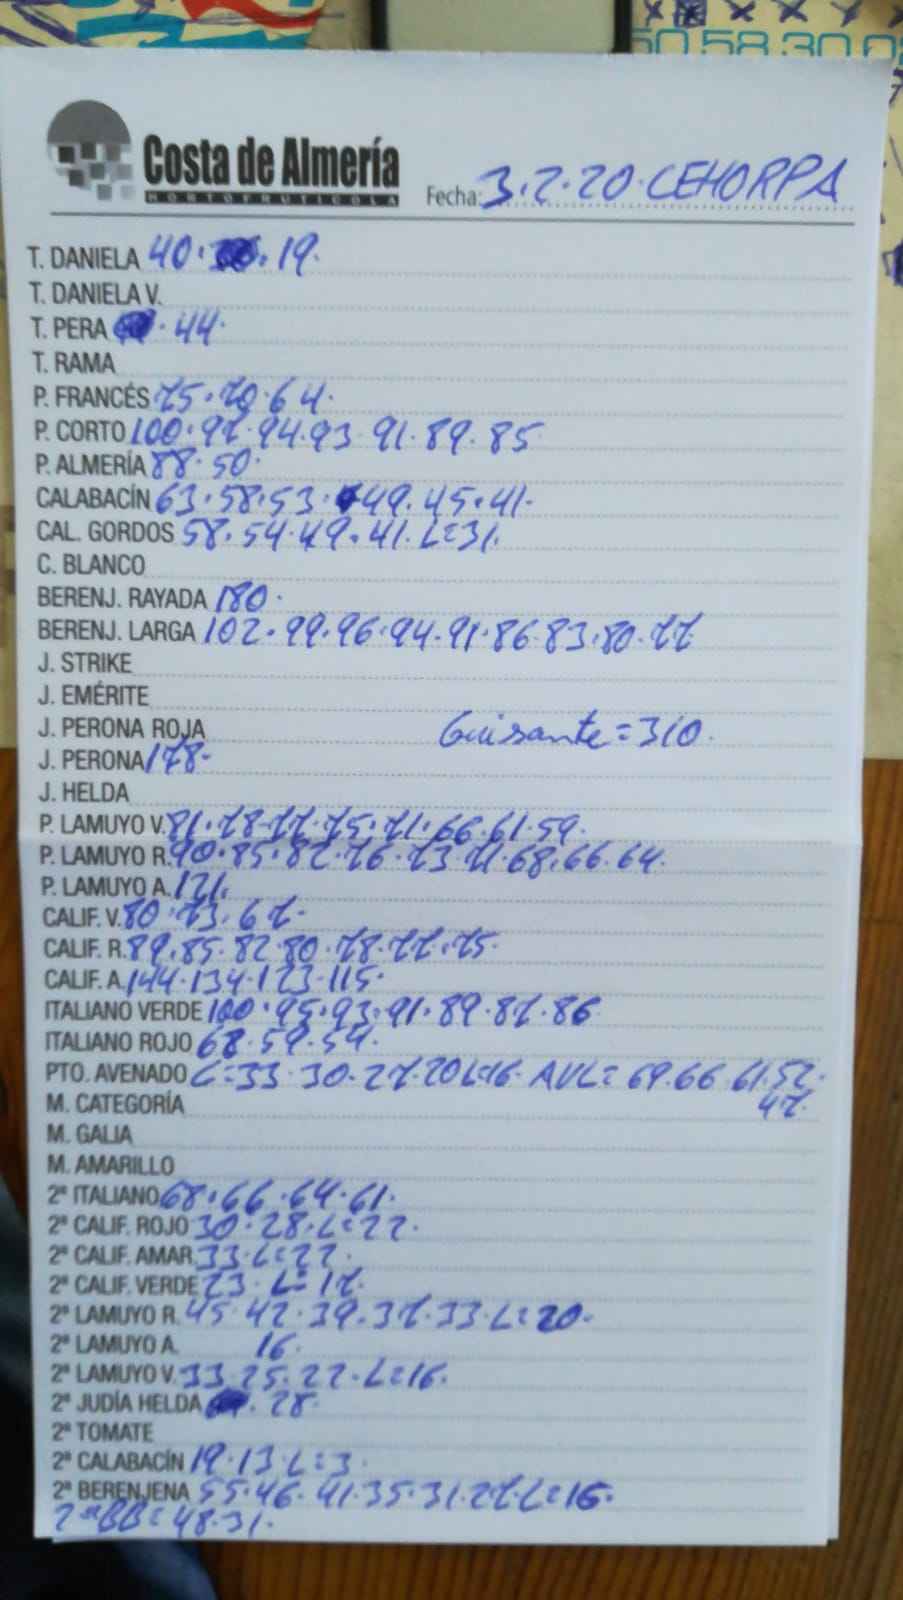 50.58.30.0
Costa de Almería
HORTOFRUTICOLA
Fecha: 3.2.20. CEHORPA
T. DANIELA 40. . 19.
T. DANIELA V.
T. PERA . 44.
T. RAMA
P. FRANCÉS 75.70.64.
P. CORTO 100.97.94.93.91.89.85
P. ALMERÍA 88.50.
CALABACÍN 63.58.53. 49.45.41.
CAL. GORDOS 58.54.49.41.L=31.
C. BLANCO
BERENJ. RAYADA 180.
BERENJ. LARGA 102.99.96.94.91.86.83.80.77
J. STRIKE
J. EMÉRITE
J. PERONA ROJA Guisante=310.
J. PERONA 178.
J. HELDA
P. LAMUYO V. 81.78.77.75.71.66.61.59.
P. LAMUYO R. 90.85.82.76.73.71.68.66.64.
P. LAMUYO A. 121.
CALIF. V. 80.73.67.
CALIF. R. 89.85.82.80.78.77.75.
CALIF. A. 144.134.123.115.
ITALIANO VERDE 100.95.93.91.89.87.86
ITALIANO ROJO 68.59.54.
PTO. AVENADO L=33.30.27.20 L=16. AVL=69.66.61.52.
47.
M. CATEGORÍA
M. GALIA
M. AMARILLO
2ª ITALIANO 68.66.64.61.
2ª CALIF. ROJO 30.28.L=22.
2ª CALIF. AMAR. 33.L=22.
2ª CALIF. VERDE 23.L=17.
2ª LAMUYO R. 45.42.39.37.33.L=20.
2ª LAMUYO A. 16.
2ª LAMUYO V. 33.25.22.L=16.
2ª JUDÍA HELDA . 28.
2ª TOMATE
2ª CALABACÍN 19.13.L=3.
2ª BERENJENA 55.46.41.35.31.27.L=16.
2ªBB=48.31.